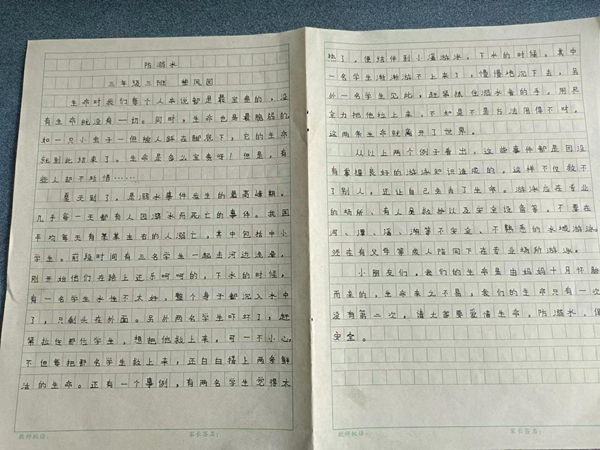 防溺水
三年级三班 楚凤园
生命对我们每个人来说都是最宝贵的，没
有生命就没有一切。同时，生命也是最脆弱的
如一只小虫子一但被人踩在脚底下，它的生命
就到此结束了。生命是多么宝贵呀！但是，有
些人却不珍惜……
夏天到了，是溺水事件发生的最高峰期。
几乎每一天都有人因溺水而死亡的事件。我国
平均每天有某某左右的人溺亡。其中包括中小
学生。前段时间有三名学生一起去河边洗澡，
刚开始他们在路上还乐呵呵的，下水的时候，
有一名学生水性不太好，整个身子都沉入水中
了，只剩头在外面。另外两名学生吓坏了，赶
紧拉住那位学生，想把他救上来，可一不小心，
不但每把那名学生救上来，还白白搭上两条鲜
活的生命。还有一个事例，有两名学生觉得太
热了，便结伴到小溪游泳。下水的时候，其中
一名学生渐渐游不上来了，慢慢地沉下去，另
外一名学生见此，赶紧抓住溺水者的手，用尽
全力把他拉上来，不知是不是方法用得不对，
这两条生命就离开了世界。
从以上两个例子看出，这些事件都是因没
有掌握良好的游泳知识造成的，这样不仅救不
了别人，还让自己失去了生命。游泳应在专业
的场所、有人员救护以及安全设备等，不要在
河、潭、溪、湖等不安全、不熟悉的水域游泳。
还在有父母等成人陪同下在专业场所游泳。
小朋友们，我们的生命是由妈妈十月怀胎
而来的，生命来之不易，我们的生命只有一次
没有第二次，请大家要爱惜生命，防溺水，保
安全。
教师批语：
家长签名：
教师批语：
家长签名：